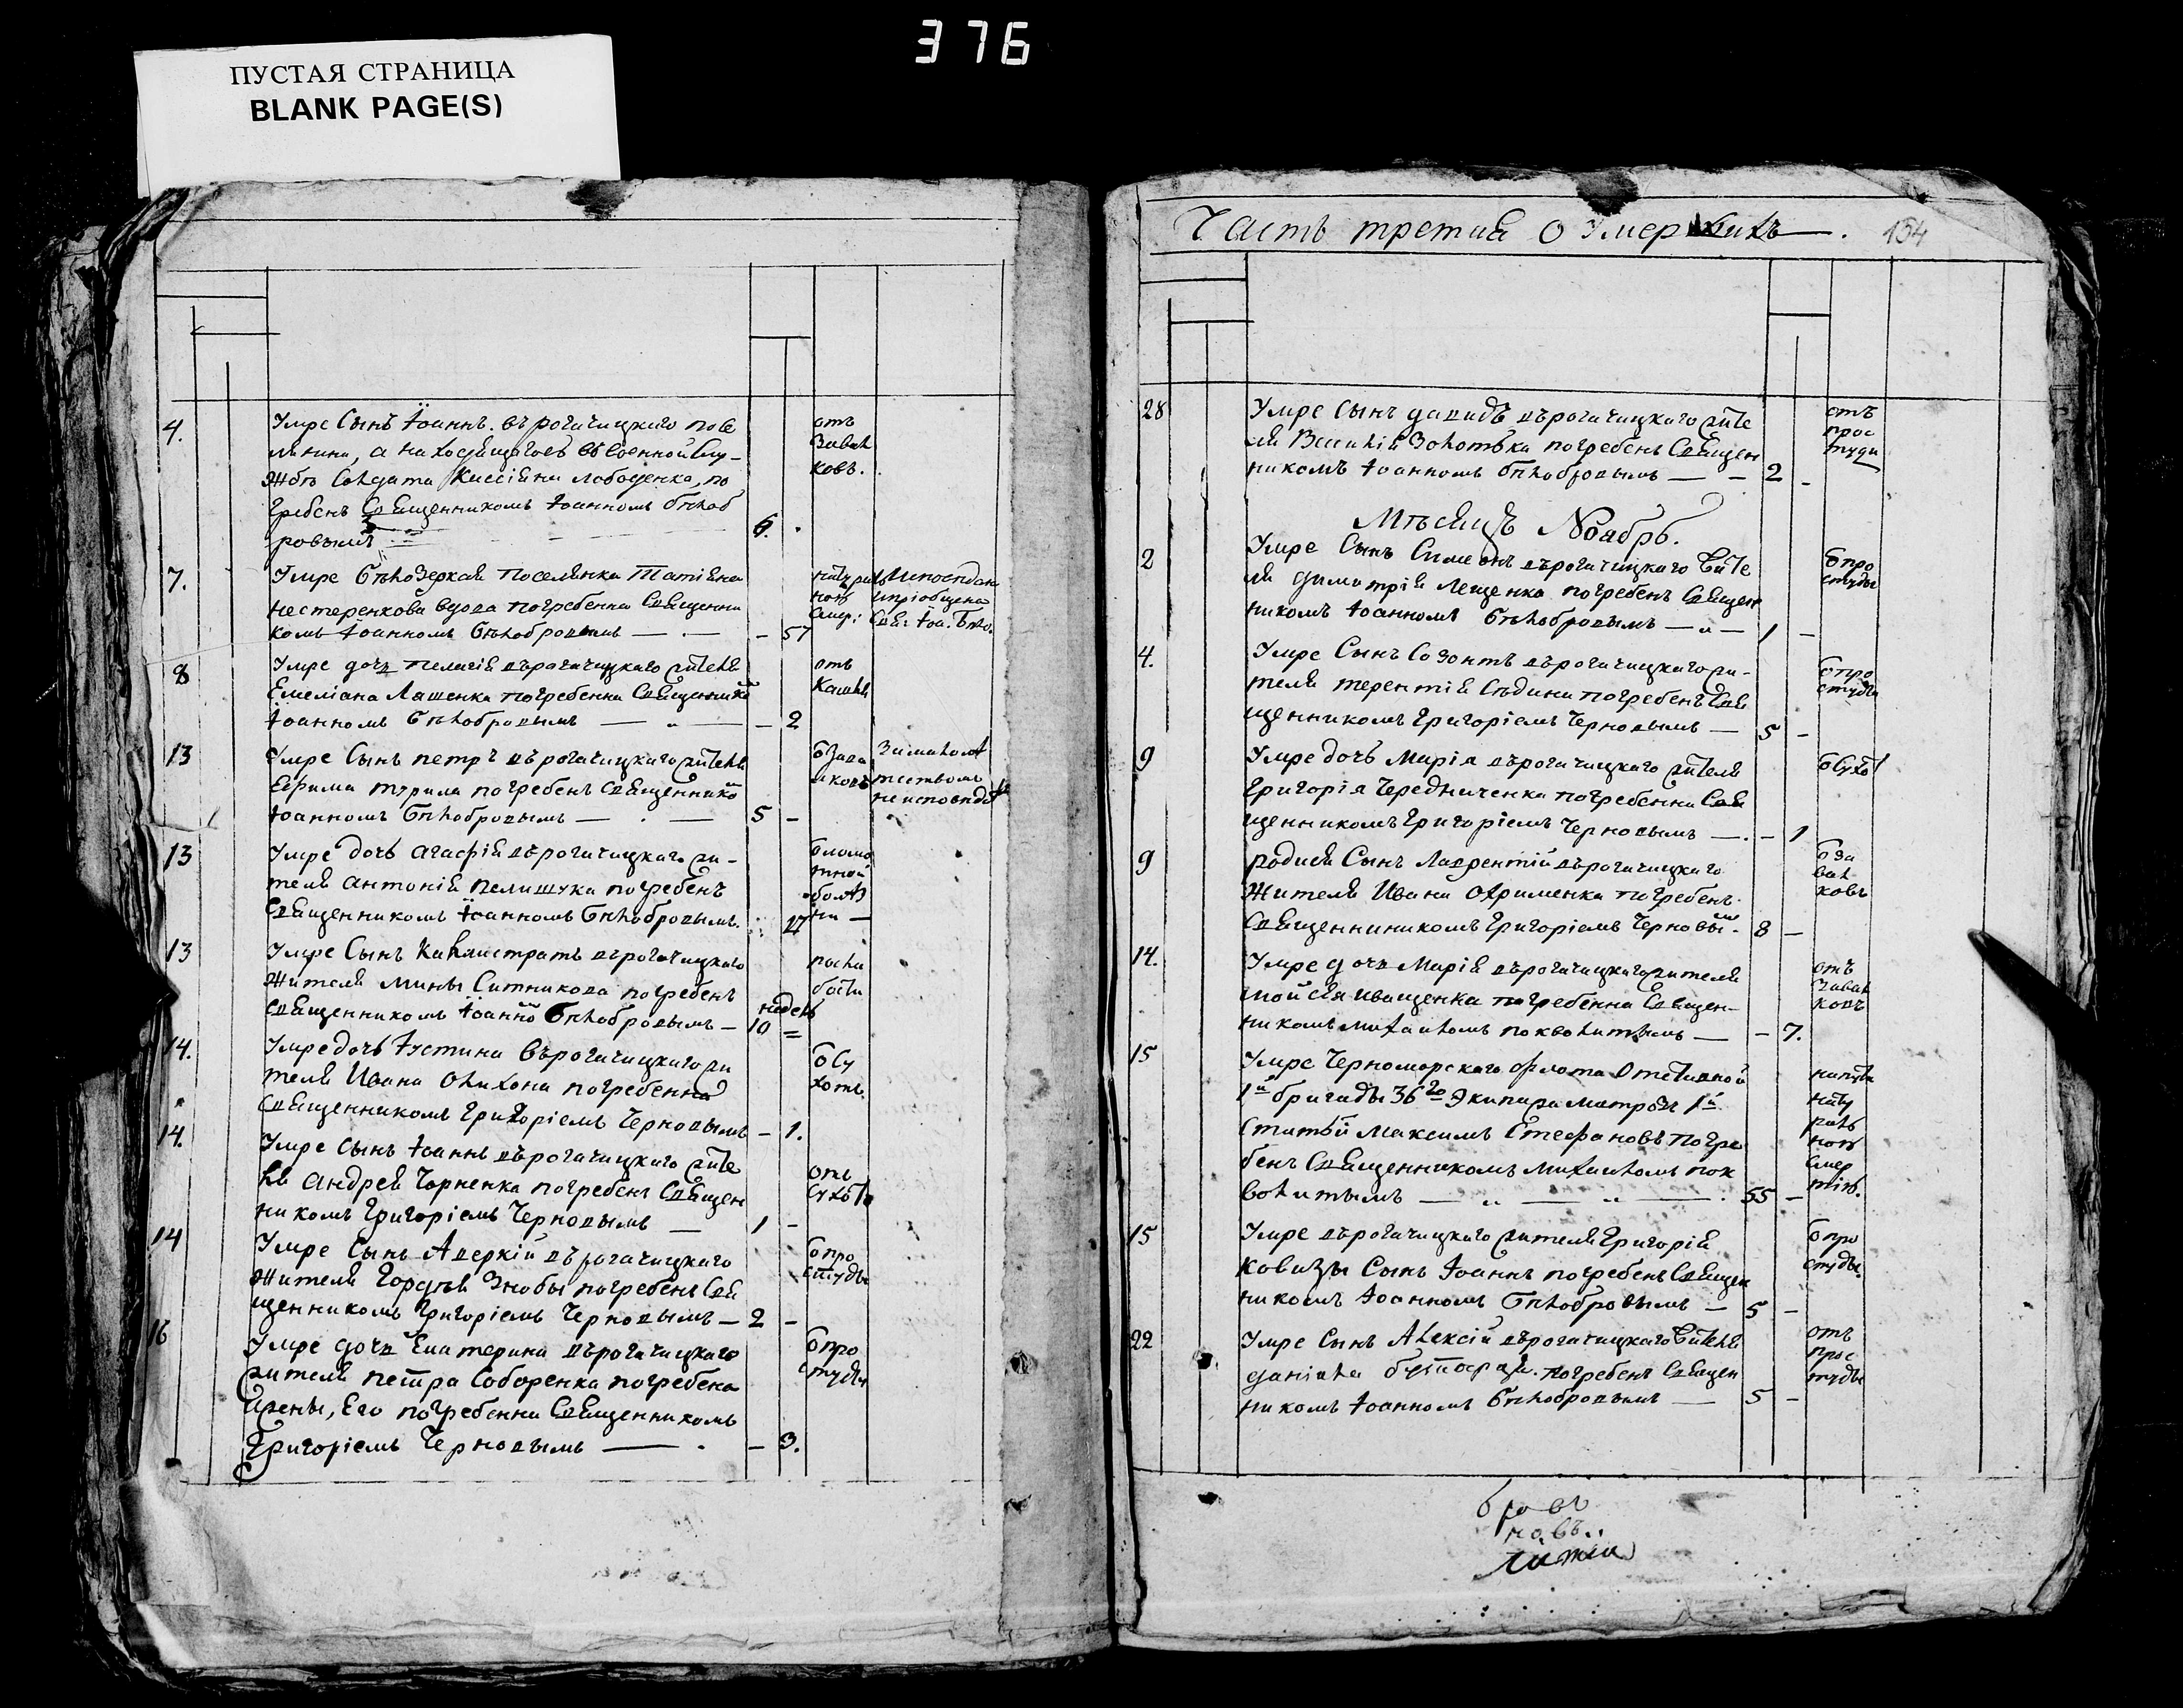 376
ПУСТАЯ СТРАНИЦА
BLANK PAGE(S)
4.
Умре Сынъ Іоаннъ. въ рогачицкаго посе
лянина, а находящагося въ военной Слу-
жбѣ Солдата Кассіяна лободенка, по
гребенъ Священникомъ Іоанномъ бѣлоб
ровымъ 6.
отъ
Завал
ковъ.
7.
Умре бѣлозеркая поселянка Татіяна
нестеренкова вдова погребенна Священни
комъ Іоанномъ бѣлобровымъ — 57
натураль
ной
Смер:
Исповѣдана
и пріобщена
Свя: Іоа. Бѣло.
8
Умре дочь пелагія въ рогачицкаго жителя
Емеліана Ляшенка погребенна Священнико
Іоанномъ бѣлобровымъ — 2
отъ
Кашля
13
Умре Сынъ петръ въ рогачицкаго жителя
Ефрима турила погребенъ Священнико
Іоанномъ бѣлобровымъ — 5 –
Замалолѣ
тствомъ
неисповѣда
13
Умре дочь агафія въ рогачицкаго жи-
теля антонія пелишука погребенъ
Священникомъ Іоанномъ бѣлобровымъ.
13
Умре Сынъ Калистратъ въ рогачицкаго
Жителя Мины Ситникова погребенъ
Священникомъ Іоанно бѣлобровымъ – 10
недель
14.
Умре дочь Іустина въ рогачицкаго жи
теля Ивана погребенна
Священникомъ Григоріемъ Черновымъ – 1.
Су
хоть.
14.
Умре Сынъ Іоаннъ въ рогачицкаго жите
ля Андрея Чорненка погребенъ Священ
никомъ Григоріемъ Черновымъ — 1 –
отъ
Сухот
14
Умре Сынъ Аверкій въ рогачицкаго
Жителя Гордѣя Знобы погребенъ Свя
щенникомъ Григоріемъ Черновымъ — 2 –
про
студы
16
Умре дочь Екатерина въ рогачицкаго
жителя петра Соборенка погребена
Погребенна Священникомъ
Григоріемъ Черновымъ — 3.
про
студы
Часть третия О Умершихъ. 154
28
Умре Сынъ давидъ въ рогачицкаго жите
ля Василія Золотька погребенъ Священ
никомъ Іоанномъ бѣлобровымъ — 2 –
отъ
прос
туди
Мѣсяцъ Ноабрь.
2
Умре Сынъ Симеонъ въ рогачицкаго жите
ля димитрія лещенка погребенъ Священ
никомъ Іоанномъ бѣлобровымъ — 1 –
про
студы
4.
Умре Сынъ Созонтъ въ рогачицкаго жи-
теля терентія Сѣдина погребенъ Свя
щенникомъ Григоріемъ Черновымъ — 5 –
про
студы
9
Умре дочь Марія въ рогачицкаго жителя
Григорія Чередниченка погребенна Свя
щенникомъ Григоріемъ Черновымъ — 1
9
родися Сынъ Лаврентій въ рогачицкаго
Жителя Ивана Охрименка погребенъ
Священниникомъ Григоріемъ Черновы 8 –
за
вал
ковъ
14.
Умре дочь Марія въ рогачицкаго жителя
Мойсея иващенка погребенна Священ-
никомъ михаиломъ поквалитымъ — 7.
отъ
Завал
ковъ
15
Умре Черноморскаго флота
1й бригады 36го Экипажа матрозъ 1й
Статьи Максимъ Стефановъ погре
бенъ Священникомъ михаиломъ пок
валитымъ — 55 –
нату
раль
ной
Смер
тію.
15
Умре въ рогачицкаго жителя Григорія
Ковизы Сынъ Іоаннъ погребенъ Священ
никомъ Іоанномъ бѣлобровымъ — 5 –
про
студы.
22
Умре Сынъ Алексій въ рогачицкаго жителя
даніила погребенъ Священ
никомъ Іоанномъ бѣлобровымъ — 5 –
отъ
прос
туды